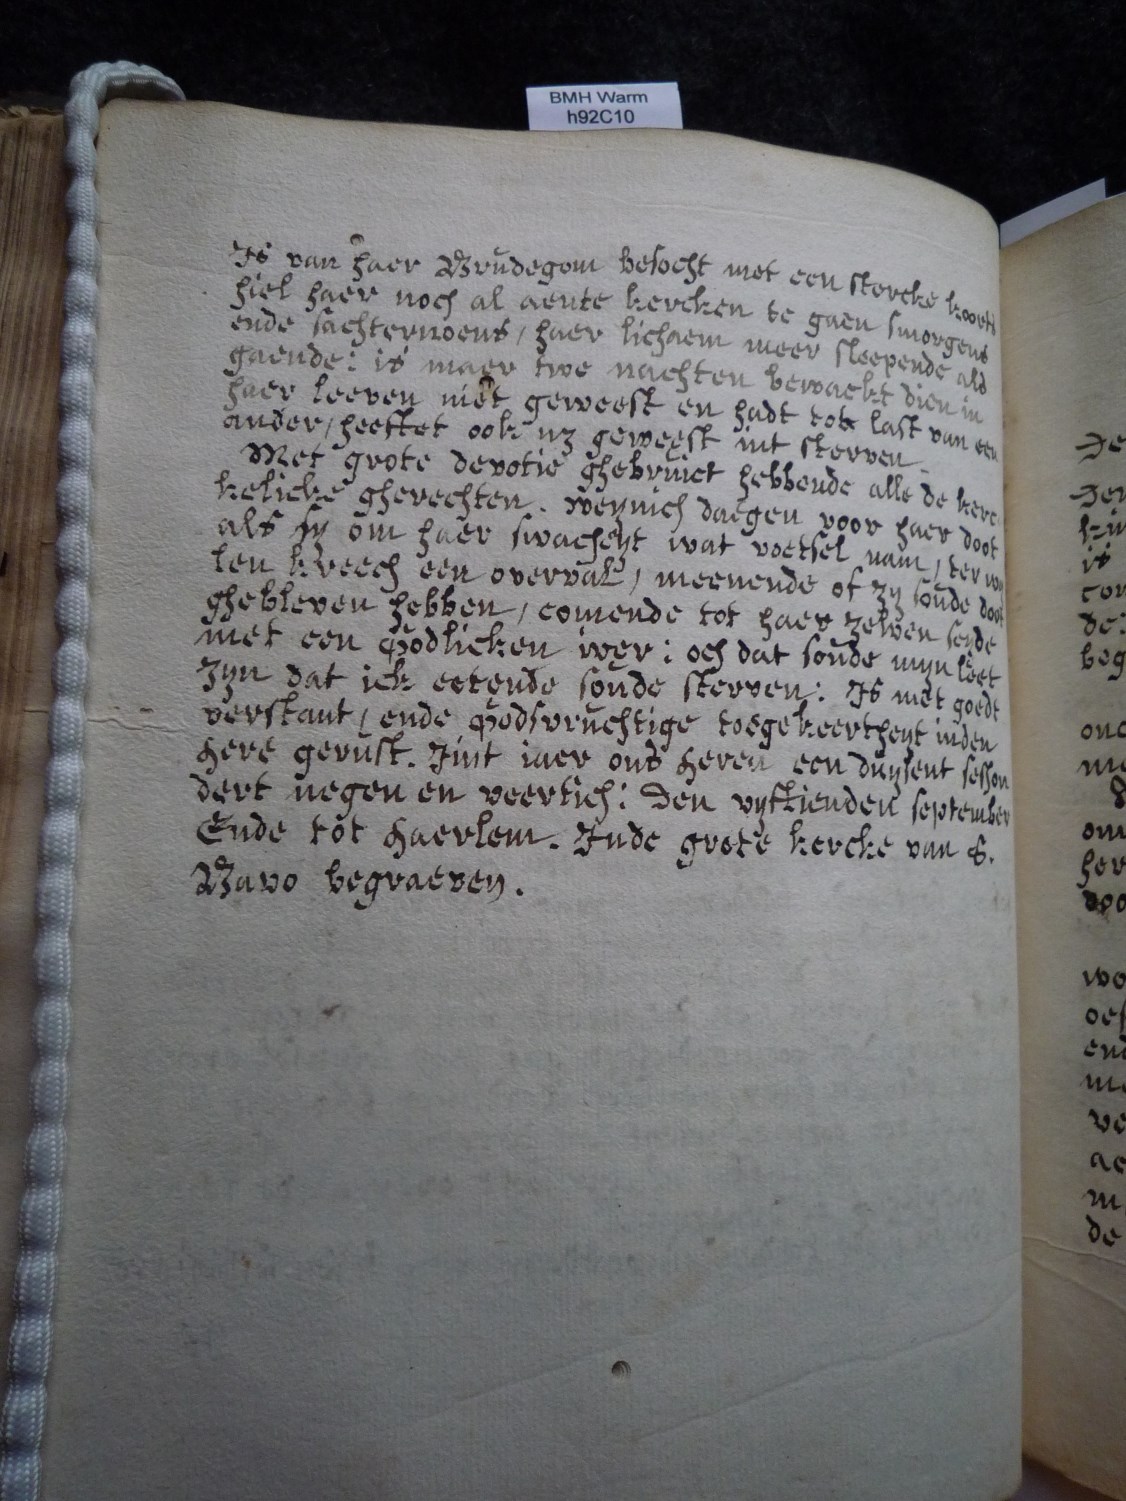 BMH Warm
h92C10
Is van haer Brudegom besocht met een stercke koorts
hiel haer noch al aente kercken te gaen smorgens
ende sachternoens / haer lichaem meer sleepende als
gaende: is maer twe nachten bewaekt dien in
haer leeven niet geweest en hadt tot last van een
ander / heeftet ook nz geweest int sterven.
Met grote devotie ghebruict hebbende alle de kerc
kelicke gherechten. weynich daegen voor haer doot
als sy om haer swacheyt wat voetsel nam / ter wy
len kreech een overval / meenende of zy soude doot
ghebleven hebben / comende tot haer zelven seyde
met een godlicken iver: och dat soude myn leet
zyn dat ick eetende soude sterven: Is met goedt
verstant / ende godsvruchtige toegekeertheyt inden
here gerust. Jnt iaer ons heren een duysent seshon
dert negen en veertich: den vyftienden september
Ende tot haerlem. Inde grote kercke van S.
Bavo begraeven.